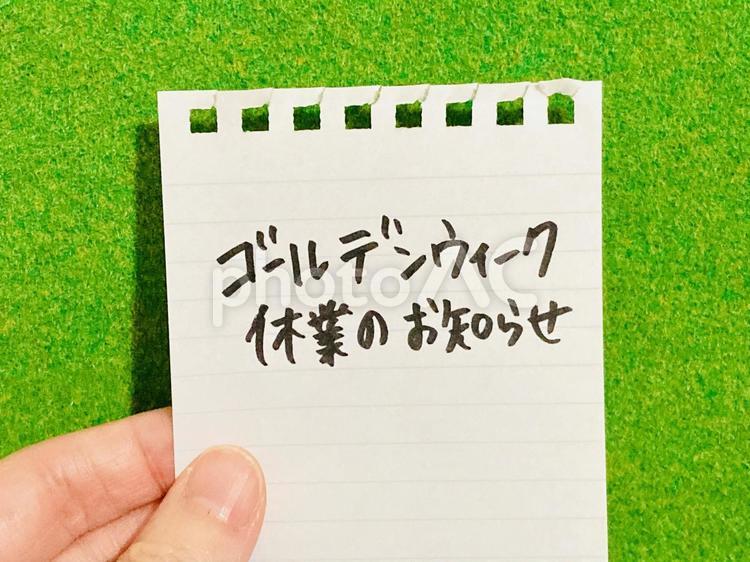 ゴールデンウィーク
休業のお知らせ
photoAC